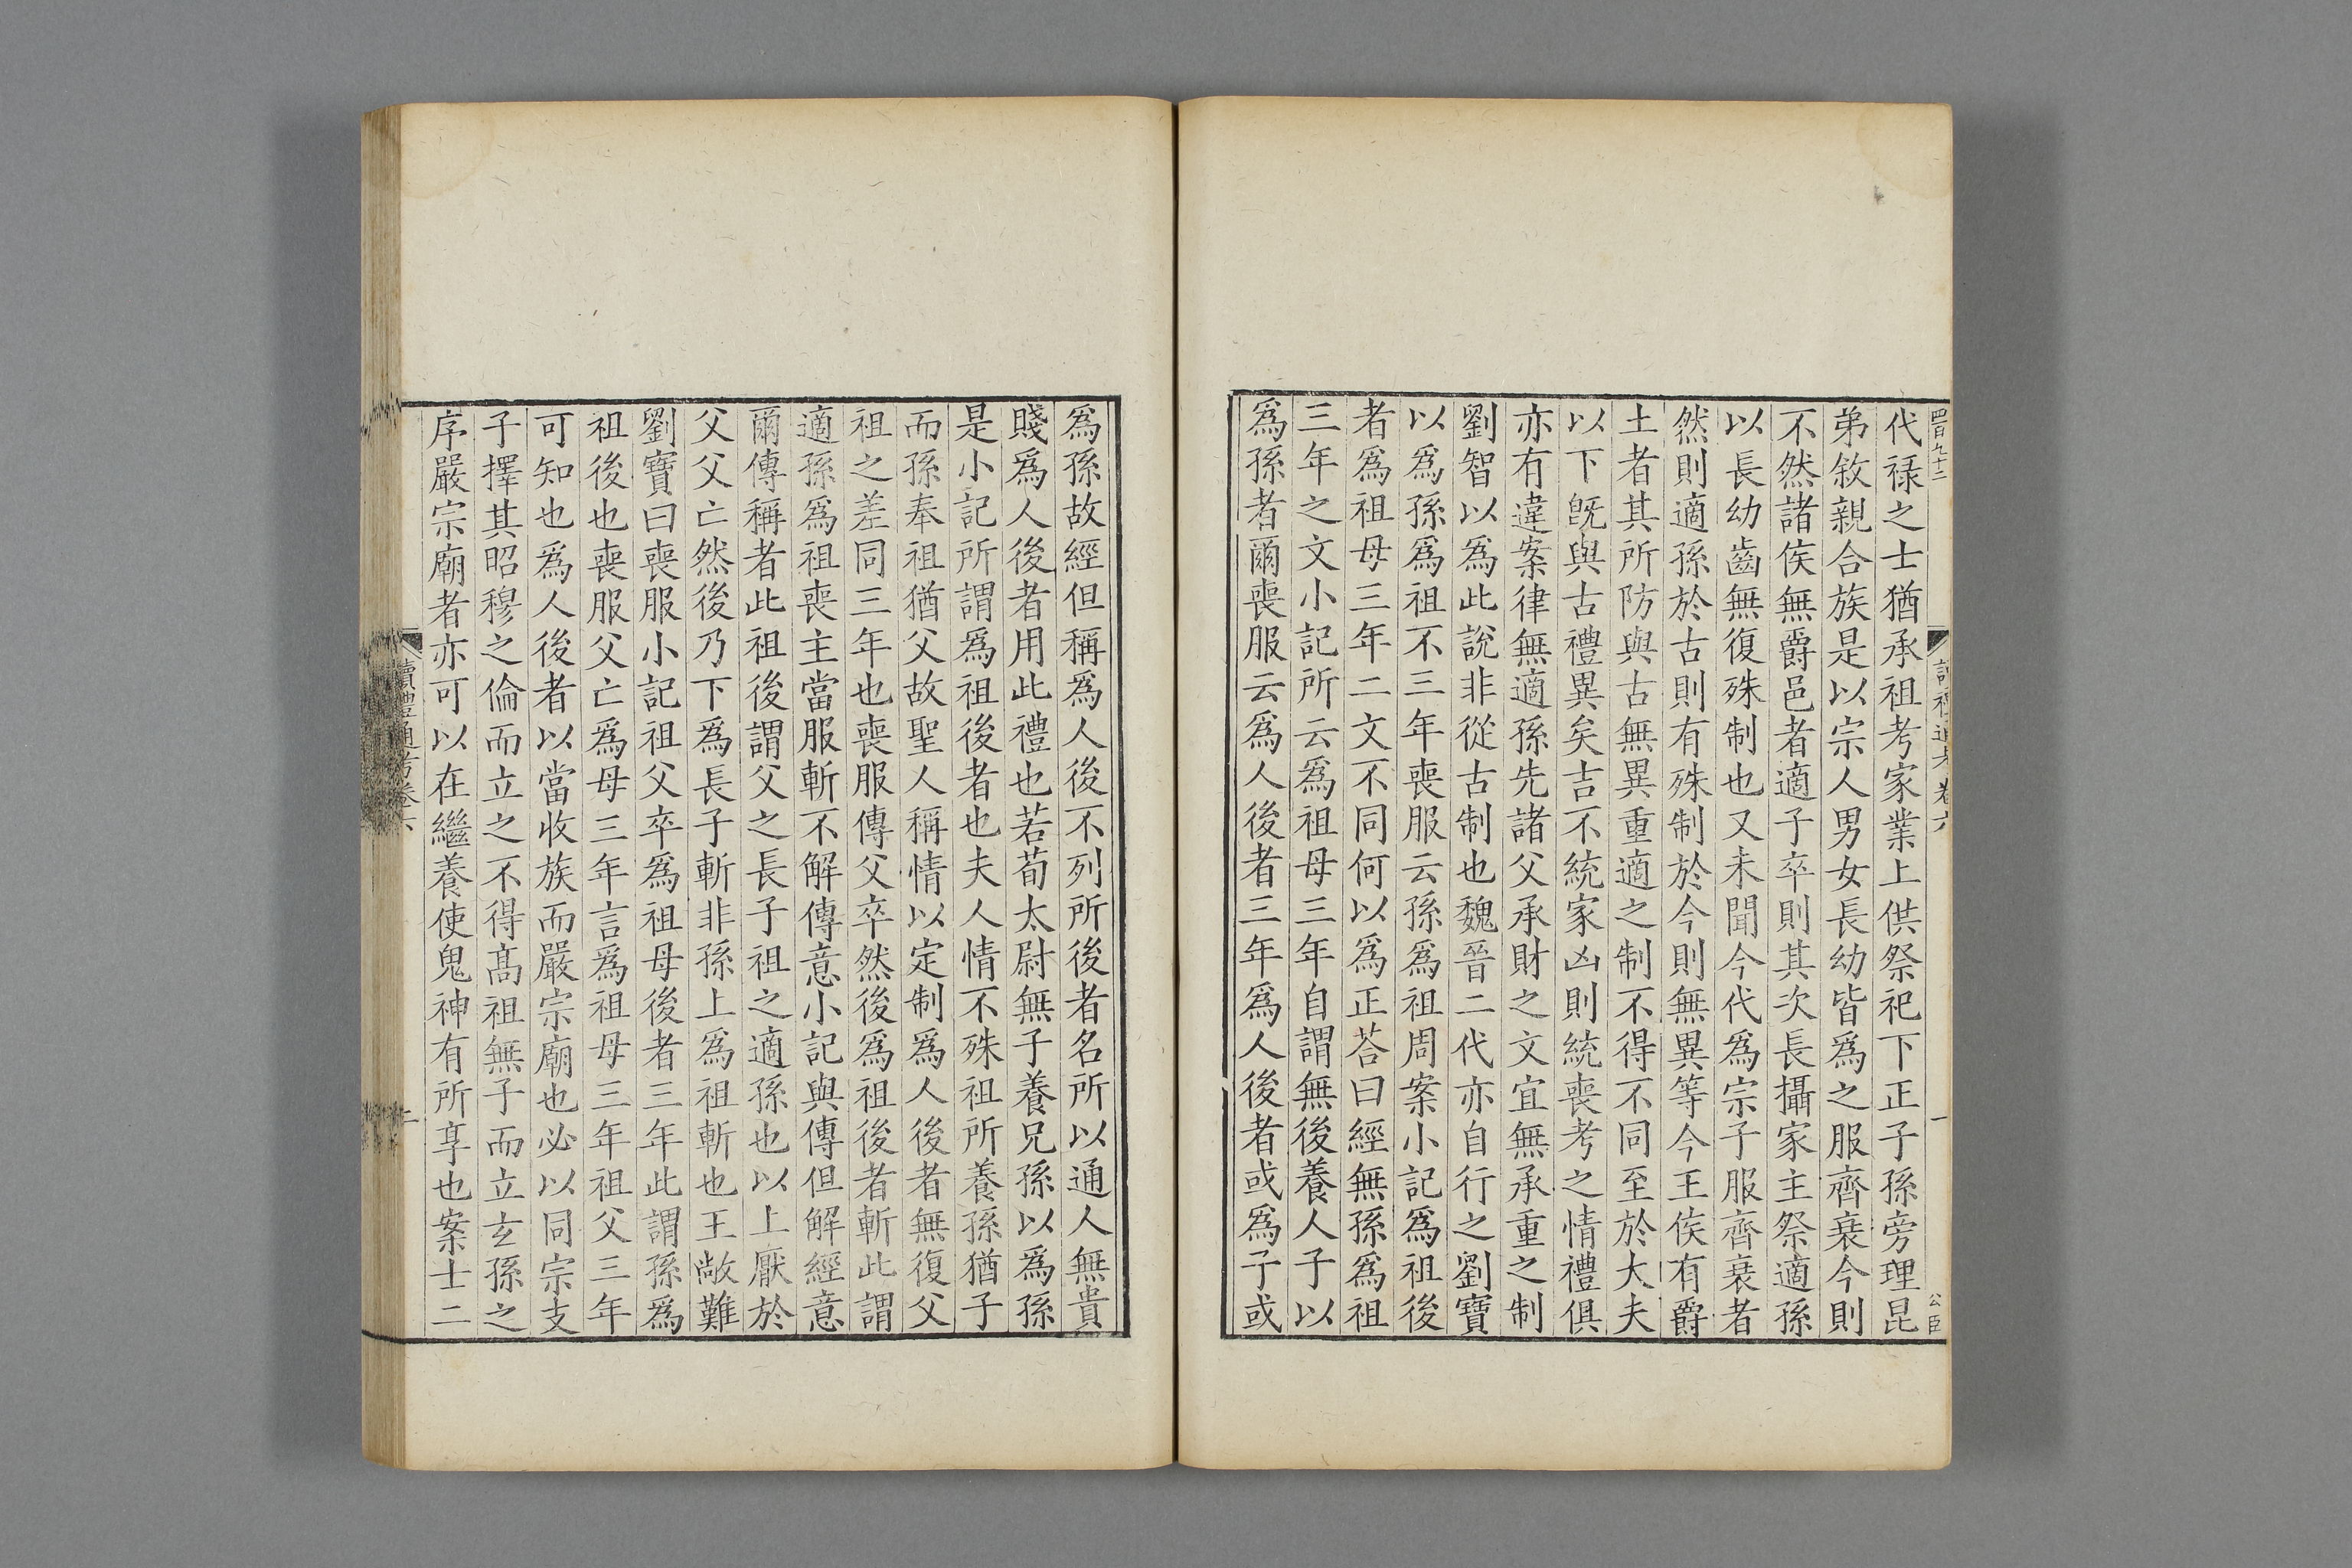 四百九十二
讀禮通考卷六
一
公臣
代祿之士猶承祖考家業上供祭祀下正子孫旁理昆
弟敘親合族是以宗人男女長幼皆爲之服齊衰今則
不然諸侯無爵邑者適子卒則其次長攝家主祭適孫
以長幼齒無復殊制也又未聞今代爲宗子服齊衰者
然則適孫於古則有殊制於今則無異等今王侯有爵
土者其所防與古無異重適之制不得不同至於大夫
以下旣與古禮異矣吉不統家凶則統喪考之情禮俱
亦有違案律無適孫先諸父承財之文宜無承重之制
劉智以爲此說非從古制也魏晉二代亦自行之劉寶
以爲孫爲祖不三年喪服云孫爲祖周案小記爲祖後
者爲祖母三年二文不同何以爲正荅曰經無孫爲祖
三年之文小記所云爲祖母三年自謂無後養人子以
爲孫者爾喪服云爲人後者三年爲人後者或爲子或
爲孫故經但稱爲人後不列所後者名所以通人無貴
賤爲人後者用此禮也若荀太尉無子養兄孫以爲孫
是小記所謂爲祖後者也夫人情不殊祖所養孫猶子
而孫奉祖猶父故聖人稱情以定制爲人後者無復父
祖之差同三年也喪服傳父卒然後爲祖後者斬此謂
適孫爲祖喪主當服斬不解傳意小記與傳但解經意
爾傳稱者此祖後謂父之長子祖之適孫也以上厭於
父父亡然後乃下爲長子斬非孫上爲祖斬也王敞難
劉寶曰喪服小記祖父卒爲祖母後者三年此謂孫爲
祖後也喪服父亡爲母三年言爲祖母三年祖父三年
可知也爲人後者以當收族而嚴宗廟也必以同宗支
子擇其昭穆之倫而立之不得髙祖無子而立玄孫之
序嚴宗廟者亦可以在繼養使鬼神有所享也案士二
讀禮通考卷六
二